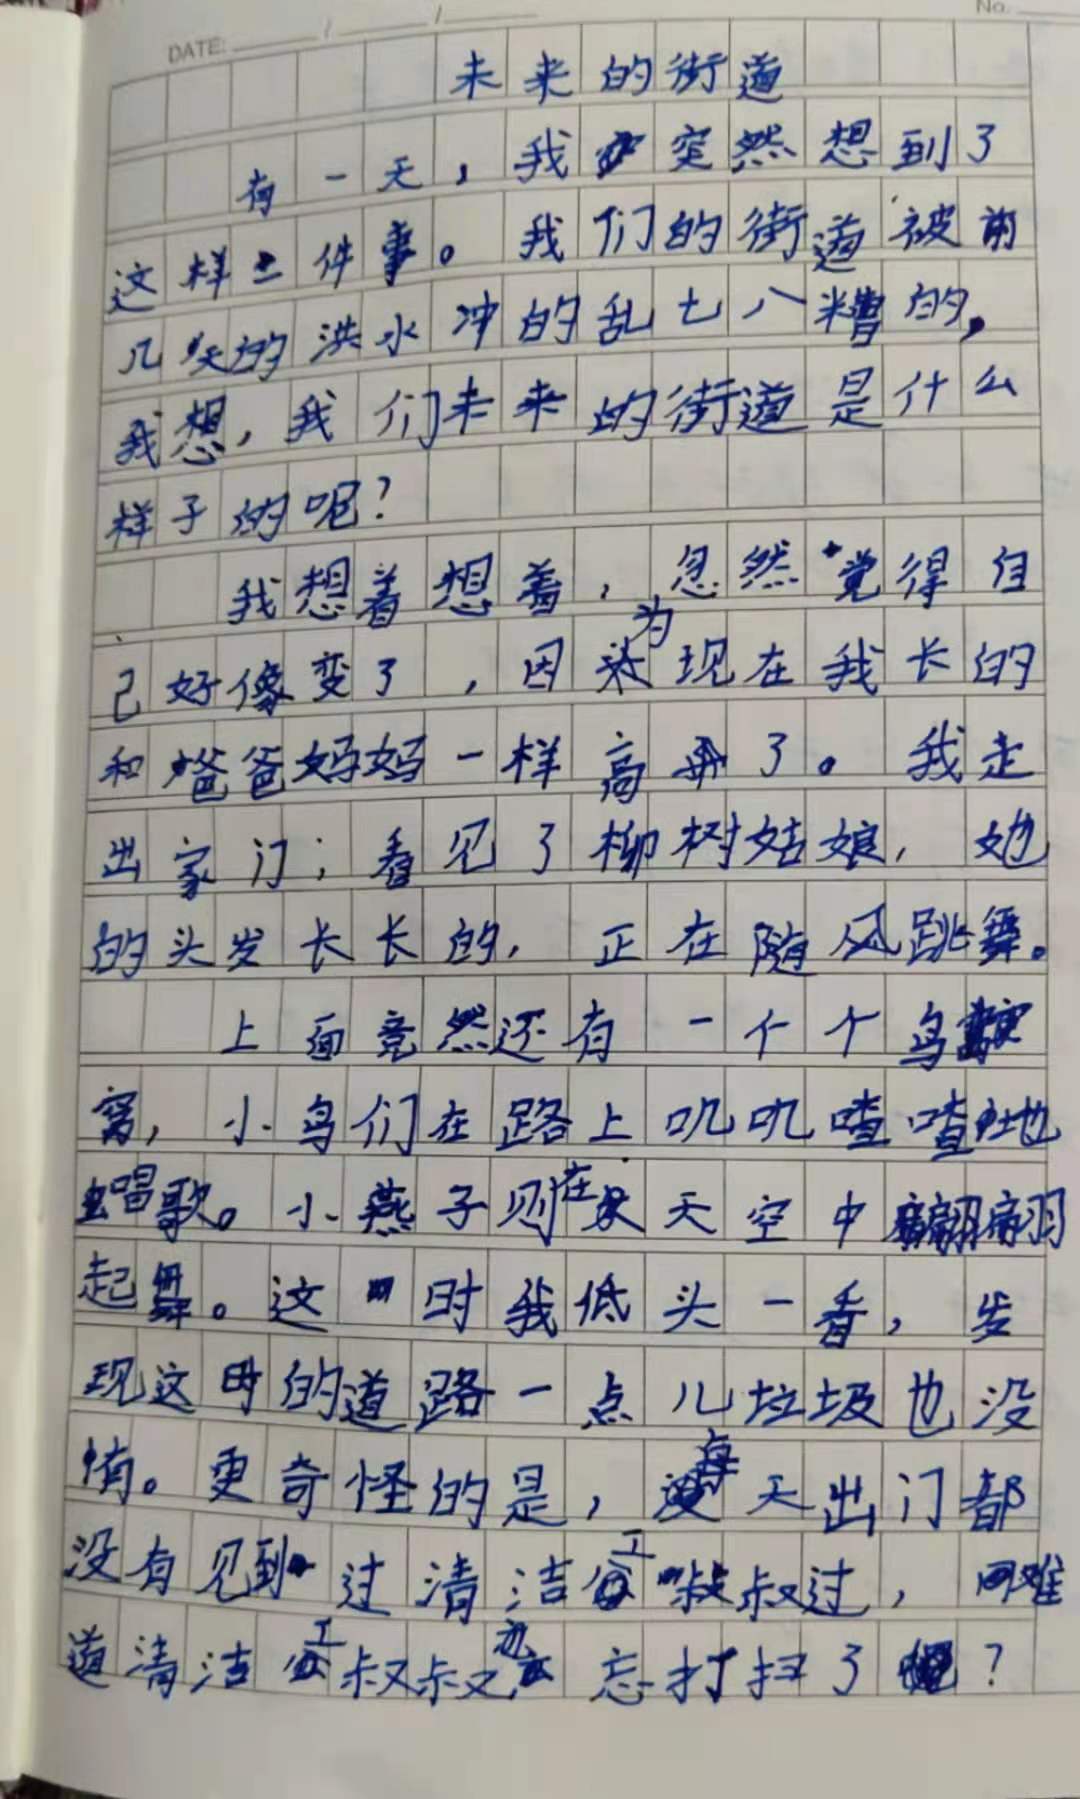 DATE: / /
No.
未来的街道
有一天，我突然想到了
这样一件事。我们的街道被前
几天的洪水冲的乱七八糟的，
我想，我们未来的街道是什么
样子的呢？
我想着想着，忽然觉得自
己好像变了，因为现在我长的
和爸爸妈妈一样高了。我走
出家门；看见了柳树姑娘，她
的头发长长的，正在随风跳舞。
上面竟然还有一个个鸟
窝，小鸟们在路上叽叽喳喳地
唱歌。小燕子则在天空中翩翩
起舞。这时我低头一看，发
现这时的道路一点儿垃圾也没
有。更奇怪的是，每天出门都
没有见到过清洁工叔叔过，难
道清洁工叔叔忘打扫了？